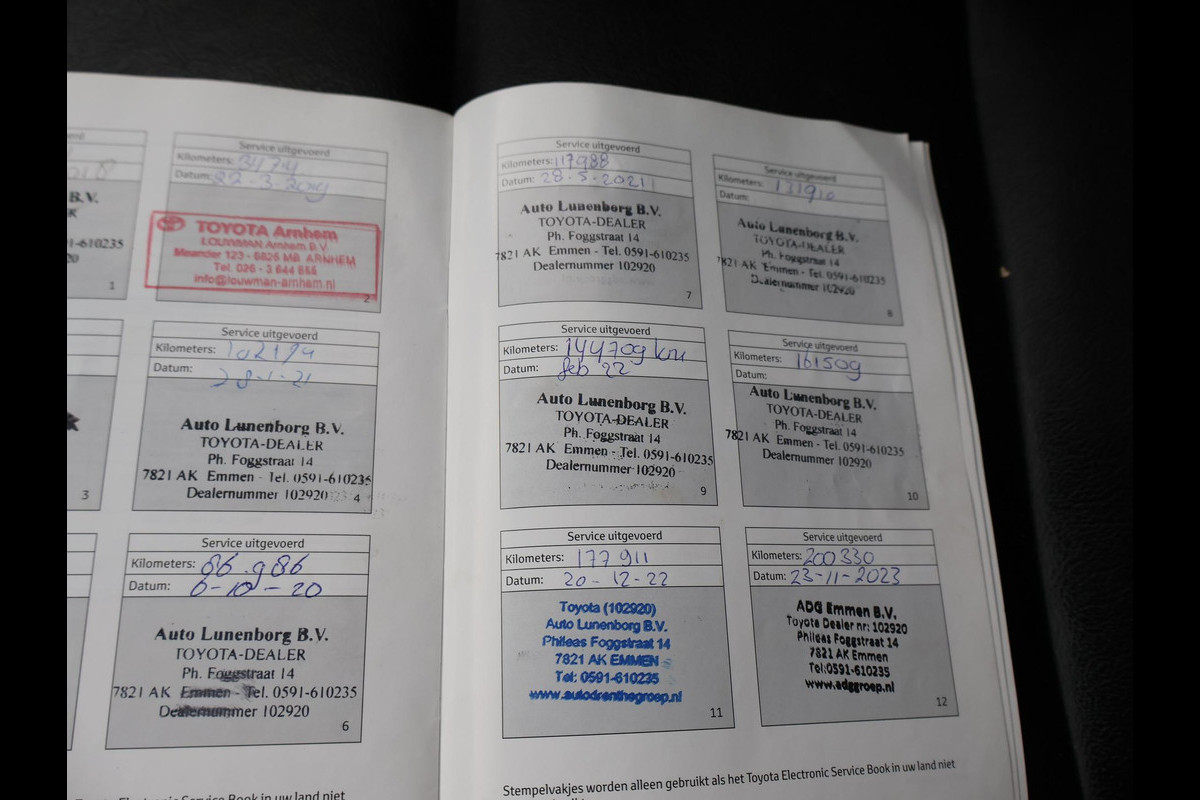 B.V.
K
1-610235
20
1
Service uitgevoerd
Kilometers:
Datum: 22-3-2019
TOYOTA Arnhem
LOUWMAN Arnhem B.V.
Meander 123 - 6825 MB ARNHEM
Tel. 026 - 3 644 655
info@louwman-arnhem.nl
2
3
Service uitgevoerd
Kilometers:
Datum: 28-1-21
Auto Lunenborg B.V.
TOYOTA-DEALER
Ph. Foggstraat 14
7821 AK Emmen - Tel. 0591-610235
Dealernummer 102920
4
Service uitgevoerd
Kilometers: 86.986
Datum: 6-10-20
Auto Lunenborg B.V.
TOYOTA-DEALER
Ph. Foggstraat 14
7821 AK Emmen - Tel. 0591-610235
Dealernummer 102920
6
Service uitgevoerd
Kilometers: 117988
Datum: 28-5-2021
Auto Lunenborg B.V.
TOYOTA-DEALER
Ph. Foggstraat 14
7821 AK Emmen - Tel. 0591-610235
Dealernummer 102920
7
Service uitgevoerd
Kilometers: 131910
Datum:
Auto Lunenborg B.V.
TOYOTA-DEALER
Ph. Foggstraat 14
7821 AK Emmen - Tel. 0591-610235
Dealernummer 102920
8
Service uitgevoerd
Kilometers: 144709 km
Datum: feb 22
Auto Lunenborg B.V.
TOYOTA-DEALER
Ph. Foggstraat 14
7821 AK Emmen - Tel. 0591-610235
Dealernummer 102920
9
Service uitgevoerd
Kilometers: 161509
Datum:
Auto Lunenborg B.V.
TOYOTA-DEALER
Ph. Foggstraat 14
7821 AK Emmen - Tel. 0591-610235
Dealernummer 102920
10
Service uitgevoerd
Kilometers: 177911
Datum: 20-12-22
Toyota (102920)
Auto Lunenborg B.V.
Phileas Foggstraat 14
7821 AK EMMEN
Tel: 0591-610235
www.autodrenthegroep.nl
11
Service uitgevoerd
Kilometers: 200330
Datum: 23-11-2023
ADG Emmen B.V.
Toyota Dealer nr: 102920
Phileas Foggstraat 14
7821 AK Emmen
Tel:0591-610235
www.adggroep.nl
12
Electronic Service Book in uw land niet
Stempelvakjes worden alleen gebruikt als het Toyota Electronic Service Book in uw land niet